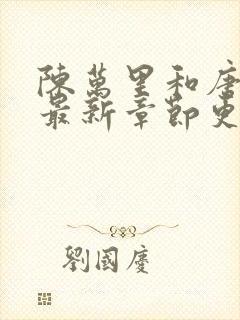 陳萬里和唐
最新章節更
劉國慶